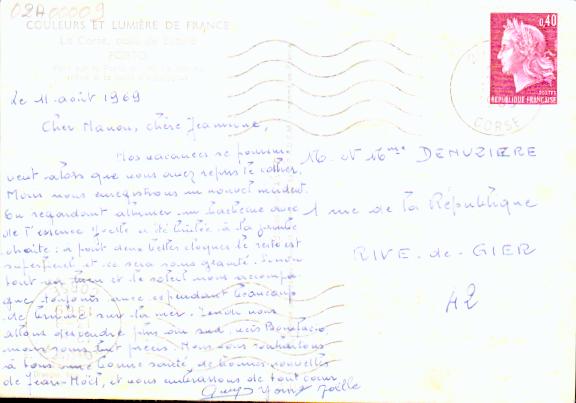 02A00009
COULEURS ET LUMIÈRE DE FRANCE
La Corse,
PORTO
0,40
POSTES
RÉPUBLIQUE FRANÇAISE
CORSE
Le 11 août 1969
Cher Manou, chère Jeannine,
Nos vacances se poursui-
vent alors que vous avez repris le collier.
Nous nous enregistrons un nouvel incident.
En regardant allumer un barbecue avec
de l'essence Joëlle a été brûlée à la jambe
droite : a part deux belles cloques le reste est
superficiel et ce sera sans gravité. Sinon
tout va bien et le soleil nous accompa-
gne toujours avec cependant beaucoup
de brume sur la mer. Lundi nous
allons descendre plus au sud, vers Bonifacio
Nous vous souhaitons
à tous une bonne santé, de bonnes nouvelles
de Jean-Noël, et vous embrassons de tout coeur
Guy Joëlle
M. et Mme DENUZIERE
1 rue de la République
RIVE-de-GIER
42